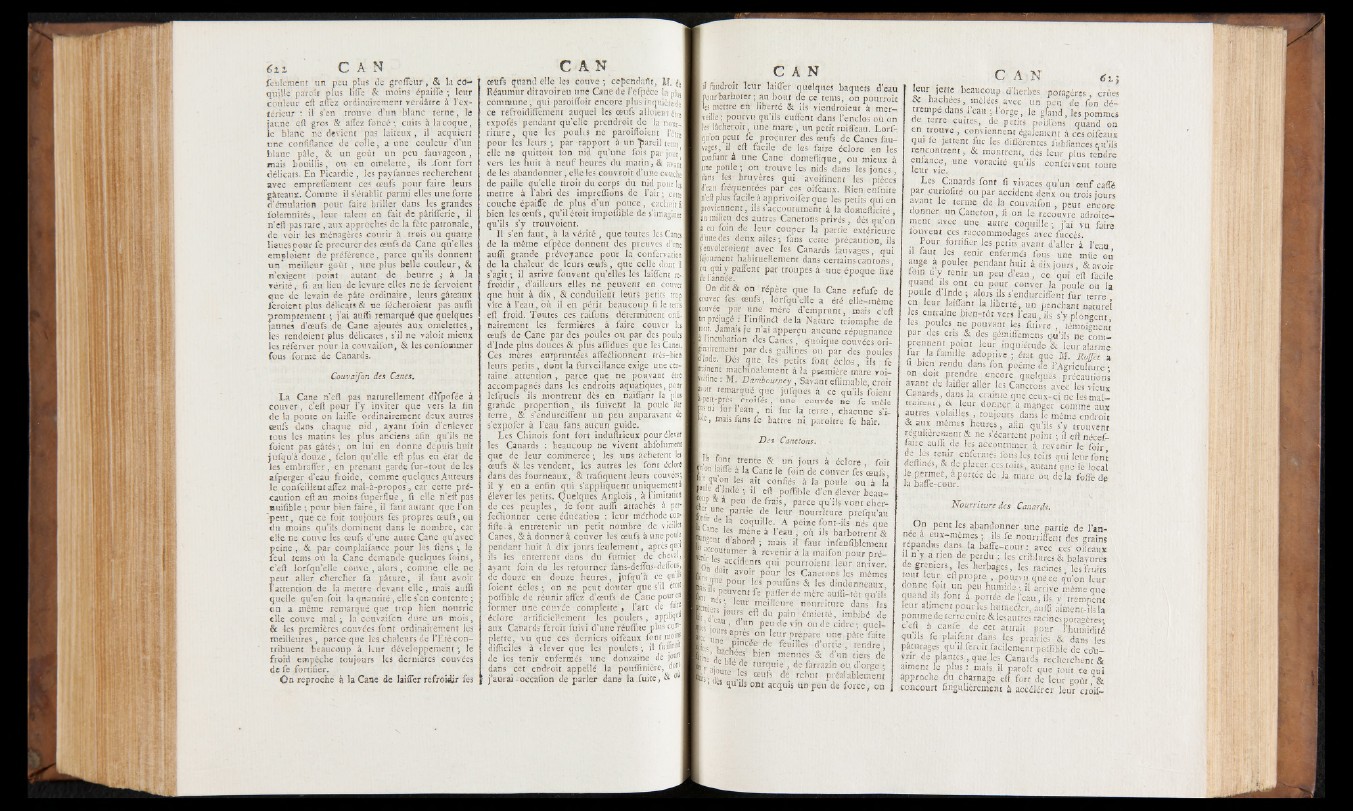 622 C A N
ſeulement un peu plus de groſſeur, & la co-
quille paroît plus liſſe & moins épaiſſe ; leur
couleur eſt aſſez ordinairement verdâtre à l'ex-
térieur : il s'en trouve d'un blanc terne, le
jaune eſt gros & aſſez foncé ; cuits à la coque,
le blanc ne devient pas laiteux, il acquiert
une conſiſtance de colle, a une couleur d'un
blanc pâle, & un goût un peu ſauvageon,
mais bouillis, ou en omelette, ils ſont fort
délicats. En Picardie, les payſannes recherchent
avec empreſſement ces œufs pour faire leurs
gâteaux. Comme il s'établit parmi elles une ſorte
d'émulation pour faire briller dans les grandes
ſolemnités, leur talent en fait de pâtiſſerie, il
n'eſt pas rare, aux approches de la fête patronale,
de voir les ménagères courir à trois ou quatre
lieues pour ſe procurer des œufs de Cane qu'elles
emploient de préférence, parce qu'ils donnent
un meilleur goût, une plus belle couleur, &
n'exigent point autant de beurre ; à la
vérité, ſi au lieu de levure elles ne ſe ſervoient
que de levain de pâte ordinaire, leurs gâteaux
ſeroient plus délicats & ne ſécheroient pas auſſi
promptement ; j'ai auſſi remarqué que quelques
jaunes d'œufs de Cane ajoutés aux omelettes,
les rendoient plus délicates, s'il ne valoit mieux
les réſerver pour la couvaiſon, & les conſommer
ſous forme de Canards.
Couvaiſon des Canes.
La Cane n'eſt pas naturellement diſpoſée à
couver, c'eſt pour l'y inviter que vers la fin
de la ponte on laiſſe ordinairement deux autres
œufs dans chaque nid, ayant ſoin d'enlever
tous les matins les plus anciens afin qu'ils ne
ſoient pas gâtés ; on lui en donne depuis huit
juſqu'à douze, ſelon qu'elle eſt plus en état de
les embraſſer, en prenant garde ſur-tout de les
aſperger d'eau froide, comme quelques Auteurs
le conſeillent aſſez mal-à-propos, car cette pré-
caution eſt au moins ſuperflue, ſi elle n'eſt pas
nuiſible ; pour bien faire, il faut autant que l'on
peut, que ce ſoit toujours ſes propres œufs, ou
du moins qu'ils dominent dans le nombre, car
elle ne couve les œufs d'une autre Cane qu'avec
peine, & par complaiſance pour les ſiens ; le
ſeul tems où la Cane demande quelques ſoins,
c'eſt lorſqu'elle couve, alors, comme elle ne
peut aller chercher ſa pâture, il faut avoir
l'attention de la mettre devant elle, mais auſſi
quelle qu'en ſoit la quantité, elle s'en contente ;
on a même remarqué que trop bien nourrie
elle couve mal ; la couvaiſon dure un mois,
& les premières couvées ſont ordinairement les
meilleures, parce que les chaleurs de l'Eté con-
tribuent beaucoup à leur développement ; le
froid empêche toujours les dernières couvées
de ſe fortifier.
On reproche à la Cane de laiſſer refroidir ſes
C A N
œufs quand elle les couve ; cependant, M. de
Réaumur dit avoir eu une Cane de l'eſpèce la plus
commune, qui paroiſſoit encore plus inquiète de
ce refroidiſſement auquel les œufs alloient être
expoſés pendant qu'elle prendroit de la nour-
riture, que les poules ne paroiſſoient l'être
pour les leurs ; par rapport à un pareil tems,
elle ne quittoit ſon nid qu'une fois par jour,
vers les huit à neuf heures du matin, & avant
de les abandonner, elle les couvroit d'une couche
de paille qu'elle tiroit du corps du nid pour les
mettre à l'abri des impreſſions de l'air ; cette
couche épaiſſe de plus d'un pouce, cachoit ſi
bien les œufs, qu'il étoit impoſſible de s'imaginer
qu'ils s'y trouvoient.
Il s'en faut, à la vérité, que toutes les Canes
de la même eſpèce donnent des preuves d'une
auſſi grande prévoyance pour la conſervation
de la chaleur de leurs œufs, que celle dont il
s'agit ; il arrive ſouvent qu'elles les laiſſent re-
froidir, d'ailleurs elles ne peuvent en couver
que huit à dix, & conduiſent leurs petits trop
vîte à l'eau, où il en périt beaucoup ſi le tems
eſt froid. Toutes ces raiſons déterminent ordi-
nairement les fermières à faire couver les
œufs de Cane par des poules ou par des poules
d'Inde plus douces & plus aſſidues que les Canes.
Ces mères empruntées affectionnent très-bien
leurs petits, dont la ſurveillance exige une cer-
taine attention, parce que ne pouvant être
accompagnés dans les endroits aquatiques, pour
leſquels ils montrent dès en naiſſant la plus
grande propenſion, ils ſuivent la poule ſur
terre, & s'endurciſſent un peu auparavant de
s'expoſer à l'eau ſans aucun guide.
Les Chinois ſont fort induſtrieux pour élever
les Canards : beaucoup ne vivent abſolument
que de leur commerce ; les uns achetent les
œufs & les vendent, les autres les font éclore
dans des fourneaux, & trafiquent leurs couvées,
il y en a enfin qui s'appliquent uniquement à
élever les petits. Quelques Anglois, à l'imitation
de ces peuples, ſe ſont auſſi attachés à per-
fectionner cette éducation : leur méthode con-
ſiſte à entretenir un petit nombre de vieilles
Canes, & à donner à couver les œufs à une poule
pendant huit à dix jours ſeulement, après quoi
ils les enterrent dans du fumier de cheval,
ayant ſoin de les retourner ſans-deſſus-deſſous,
de douze en douze heures, juſqu'à ce qu'ils
ſoient éclos ; on ne peut douter que s'il étoit
poſſible de réunir aſſez d'œufs de Cane pour en
former une couvée complette, l'art de faire
éclore artificiellement les poulets, appliqué
aux Canards ſeroit ſuivi d'une réuſſite plus com-
plette, vu que ces derniers oiſeaux ſont moins
difficiles à élever que les poulets ; il ſuffiroit
de les tenir enfermés une douzaine de jours
dans cet endroit appellé la pouſſinière, dont
j'aurai occaſion de parler dans la ſuite, & où
C A N
il faudroit leur laiſſer quelques baquets d'eau
pour barboter ; au bout de ce tems, on pourroit
les mettre en liberté & ils viendroient à mer-
veille ; pourvu qu'ils euſſent dans l'enclos où on
les lâcheroit, une mare, un petit ruiſſeau. Lorſ-
qu'on peut ſe procurer des œufs de Canes ſau-
vages, il eſt facile de les faire éclore en les
confiant à une Cane domeſtique, ou mieux à
une poule ; on trouve les nids dans les joncs,
dans les bruyères qui avoiſinent les pièces
d'eau fréquentées par ces oiſeaux. Rien enſuite
n'eſt plus facile à apprivoiſer que les petits qui en
proviennent, ils s'accoutument à la domeſticité,
au milieu des autres Canetons privés, dès qu'on
a eu ſoin de leur couper la partie extérieure
d'une des deux aîles ; ſans cette précaution, ils
s'envoleroient avec les Canards ſauvages, qui
ſéjournent habituellement dans certains cantons,
ou qui y paſſent par troupes à une époque fixe
de l'année.
On dit & on répète que la Cane refuſe de
couver ſes œufs, lorſqu'elle a été elle-même
couvée par une mère d'emprunt, mais c'eſt
un préjugé : l'inſtinct de la Nature triomphe de
tout. Jamais je n'ai apperçu aucune répugnance
à l'incubation des Canes, quoique couvées ori-
ginairement par des gallines ou par des poules
d'Inde. Dès que les petits ſont éclos, ils ſe
traînent machinalement à la première mare voi-
ſine : M. Dambourney, Savant eſtimable, croit
avoir remarqué que juſques à ce qu'ils ſoient
à-peu-près croiſés, une couvée ne ſe mêle
ni ſur l'eau, ni ſur la terre, chacune s'i-
ſole, mais ſans ſe battre ni paroître ſe haïr.
Des Canetons.
Ils ſont trente & un jours à éclore, ſoit
qu'on laiſſe à la Cane le ſoin de couver ſes œufs,
ſoit qu'on les ait confiés à la poule ou à la
poule d'Inde ; il eſt poſſible d'en élever beau-
coup & à peu de frais, parce qu'ils vont cher-
cher une partie de leur nourriture preſqu'au
ſortir de la coquille. A peine ſont-ils nés que
la Cane les mène à l'eau, où ils barbottent &
mangent d'abord ; mais il faut inſenſiblement
les accoutumer à revenir à la maiſon pour pré-
venir les accidents qui pourroient leur arriver.
On doit avoir pour les Canetons les mêmes
ſoins que pour les pouſſins & les dindonneaux,
mais ils peuvent ſe paſſer de mère auſſi-tôt qu'ils
ſont nés ; leur meilleure nourriture dans les
premiers jours eſt du pain émietté, imbibé de
d'eau, d'un peu de vin ou de cidre ; quel-
ques jours après on leur prépare une pâte faite
avec une pincée de feuilles d'ortie, tendre,
hachées bien menues & d'un tiers de
farine de blé de turquie, de ſarrazin ou d'orge ;
on y ajoute les œufs de rebut préalablement
dès qu'ils ont acquis un peu de force, on
C A N 623
leur jette beaucoup d'herbes potagères, crues
& hachées, mêlées avec un peu de ſon dé-
trempé dans l'eau ; l'orge, le gland, les pommes
de terre cuites, de petits poiſſons quand on
en trouve, conviennent également à ces oiſeaux
qui ſe jettent ſur les différentes ſubſtances qu'ils
rencontrent, & montrent, dès leur plus tendre
enfance, une voracité qu'ils conſervent toute
leur vie.
Les Canards ſont ſi vivaces qu'un œuf caſſé
par curioſité ou par accident deux ou trois jours
avant le terme de la couvaiſon, peut encore
donner un Caneton, ſi on le recouvre adroite-
ment avec une autre coquille ; j'ai vu faire
ſouvent ces raccommodages avec ſuccès.
Pour fortifier les petits avant d'aller à l'eau,
il faut les tenir enfermés ſous une mûe ou
auge à poulet pendant huit à dix jours, & avoir
ſoin d'y tenir un peu d'eau, ce qui eſt facile
quand ils ont eu pour couver la poule ou la
poule d'Inde ; alors ils s'endurciſſent ſur terre,
en leur laiſſant la liberté, un penchant naturel
les entraîne bien-tôt vers l'eau, ils s'y plongent,
les poules ne pouvant les ſuivre, témoignent
par des cris & des gémiſſemens qu'ils ne com-
prennent point leur inquiétude & leur alarme
ſur la famille adoptive ; état que M. Roſſet a
ſi bien rendu dans ſon poëme de l'Agriculture ;
on doit prendre encore quelques précautions
avant de laiſſer aller les Canetons avec les vieux
Canards, dans la crainte que ceux-ci ne les mal-
traitent, & leur donner à manger comme aux
autres volailles, toujours dans le même endroit
& aux mêmes heures, afin qu'ils s'y trouvent
régulièrement & ne s'écartent point ; il eſt néceſ-
ſaire auſſi de les accoutumer à revenir le ſoir,
de les tenir enfermés ſous les toits qui leur ſont
deſtinés, & de placer ces toits, autant que le local
le permet, à portée de la mare ou de la foſſe de
la baſſe-cour.
Nourriture des Canards.
On peut les abandonner une partie de l'an-
née à eux-mêmes ; ils ſe nourriſſent des grains
répandus dans la baſſe-cour : avec ces oiſeaux
il n'y a rien de perdu ; les criblures & balayures
de greniers, les herbages, les racines, les fruits
tout leur eſt propre, pourvu que ce qu'on leur
donne ſoit un peu humide ; il arrive même que
quand ils ſont à portée de l'eau, ils y trempent
leur aliment pour les humecter, auſſi aiment-ils la
pomme de terre cuite & les autres racines potagères;
c'eſt à cauſe de cet attrait pour l'humidité
qu'ils ſe plaiſent dans les prairies & dans les
pâturages qu'il ſeroit facilement poſſible de cou-
vrir de plantes, que les Canards recherchent &
aiment le plus : mais il paroît que tout ce qui
approche du charnage eſt fort de leur goût, &
concourt ſingulièrement à accélérer leur croiſ-